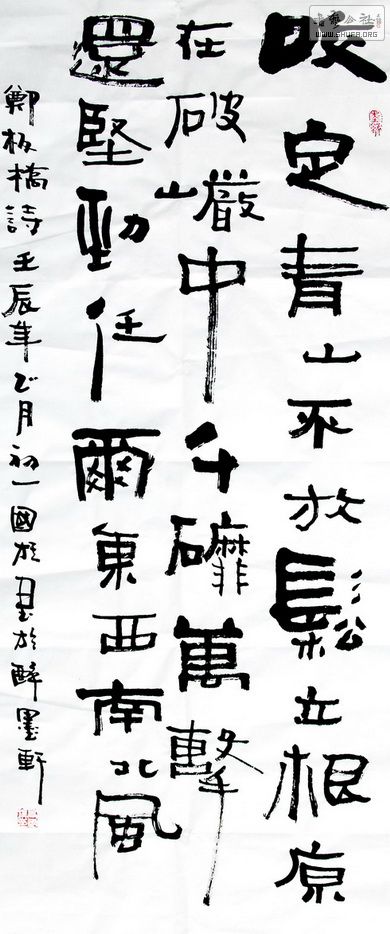 書法公社
WWW.SHUFA.ORG
咬定青山不放鬆立根原
在破巖中千磨萬擊
還堅勁任爾東西南北風
鄭板橋詩壬辰年乙月初一國於醉墨軒